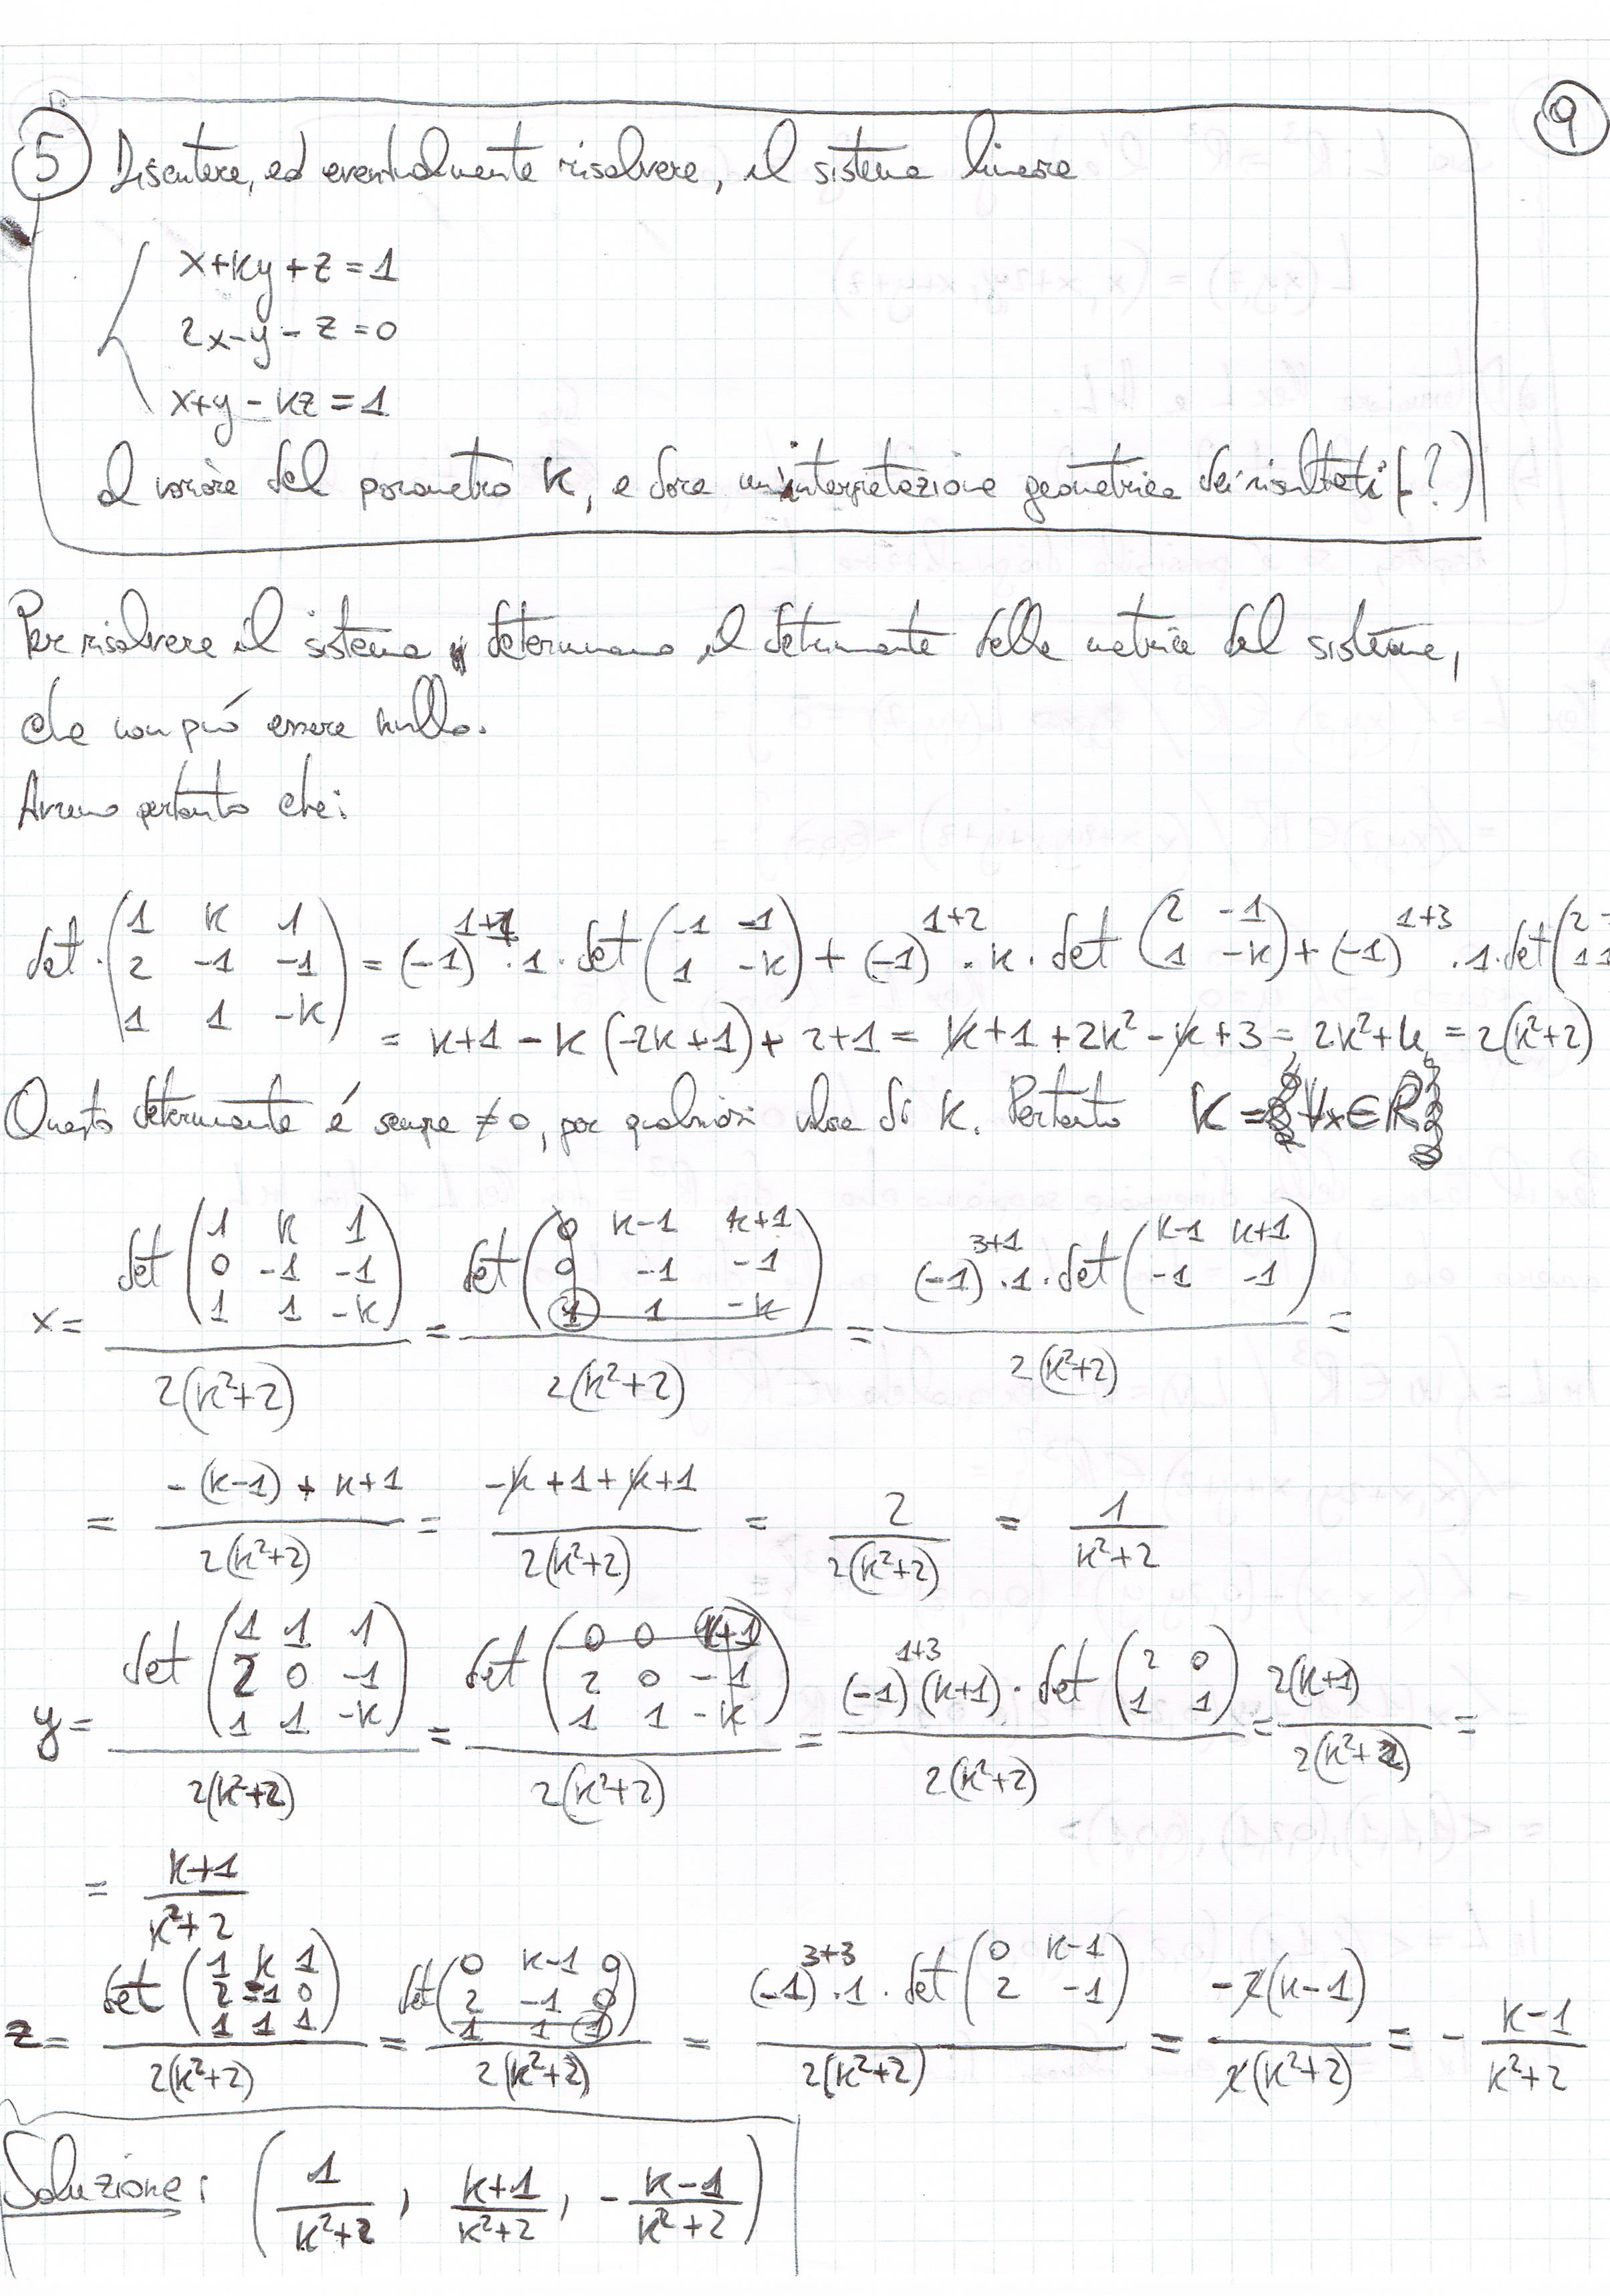 9
5 Discutere, ed eventualmente risolvere, il sistema lineare
x+ky+z=1
2x-y-z=0
x+y-kz=1
al variare del parametro k, e dare un'interpretazione geometrica dei risultati (?)
Per risolvere il sistema determiniamo il determinante della matrice del sistema,
che non può essere nullo.
Avremo pertanto che:
det (1 k 1; 2 -1 -1; 1 1 -k) = (-1)^{1+1}·1·det(-1 -1; 1 -k) + (-1)^{1+2}·k·det(2 -1; 1 -k) + (-1)^{1+3}·1·det(2 -; 1 1
= k+1-k(-2k+1)+2+1 = k+1+2k²-k+3 = 2k²+4 = 2(k²+2)
Questo determinante é sempre ≠0, per qualsiasi valore di k. Pertanto K = {∀x∈R}
x = det(1 k 1; 0 -1 -1; 1 1 -k) / 2(k²+2) = det(0 k-1 k+1; 0 -1 -1; 1 1 -k) / 2(k²+2) = (-1)^{3+1}·1·det(k-1 k+1; -1 -1) / 2(k²+2) =
= -(k-1)+k+1 / 2(k²+2) = -k+1+k+1 / 2(k²+2) = 2 / 2(k²+2) = 1 / k²+2
y = det(1 1 1; 2 0 -1; 1 1 -k) / 2(k²+2) = det(0 0 k+1; 2 0 -1; 1 1 -k) / 2(k²+2) = (-1)^{1+3}(k+1)·det(2 0; 1 1) / 2(k²+2) = 2(k+1) / 2(k²+2) =
= k+1 / k²+2
z = det(1 k 1; 2 -1 0; 1 1 1) / 2(k²+2) = det(0 k-1 0; 2 -1 0; 1 1 1) / 2(k²+2) = (-1)^{3+3}·1·det(0 k-1; 2 -1) / 2(k²+2) = -2(k-1) / 2(k²+2) = - k-1 / k²+2
Soluzione: (1 / k²+2, k+1 / k²+2, - k-1 / k²+2)